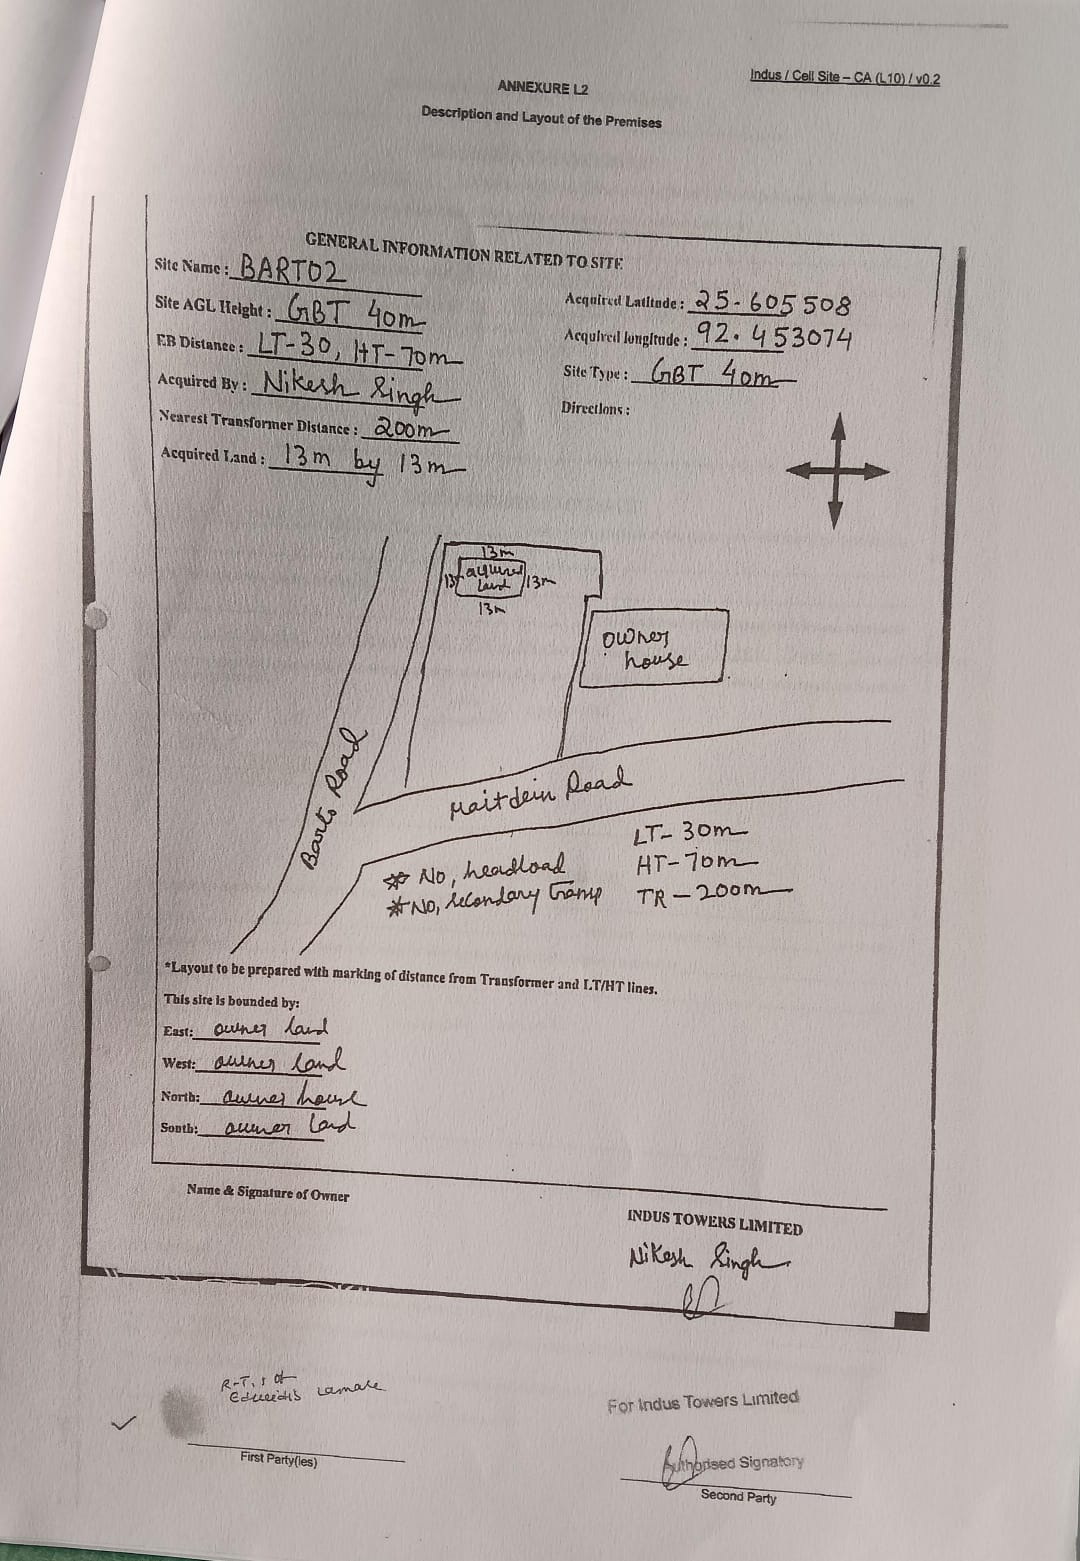 Indus / Cell Site – CA (L10) / v0.2
ANNEXURE L2
Description and Layout of the Premises
GENERAL INFORMATION RELATED TO SITE
Site Name : BART02
Acquired Latitude : 25-605508
Site AGL Height : GBT 40m
Acquired longitude : 92.453074
EB Distance : LT-30, HT-70m
Site Type : GBT 40m
Acquired By : Nikesh Singh
Directions :
Nearest Transformer Distance : 200m
Acquired Land : 13m by 13m
13m
13m
land
13m
13m
owner
house
Barto Road
Maitdein Road
LT- 30m
HT-70m
TR-200m
* No, headload
* No, secondary transp
*Layout to be prepared with marking of distance from Transformer and LT/HT lines.
This site is bounded by:
East: owner land
West: owner land
North: owner house
South: owner land
Name & Signature of Owner
INDUS TOWERS LIMITED
Nikesh Singh
R-T.I of
Lamare
First Party(ies)
For Indus Towers Limited
Authorised Signatory
Second Party